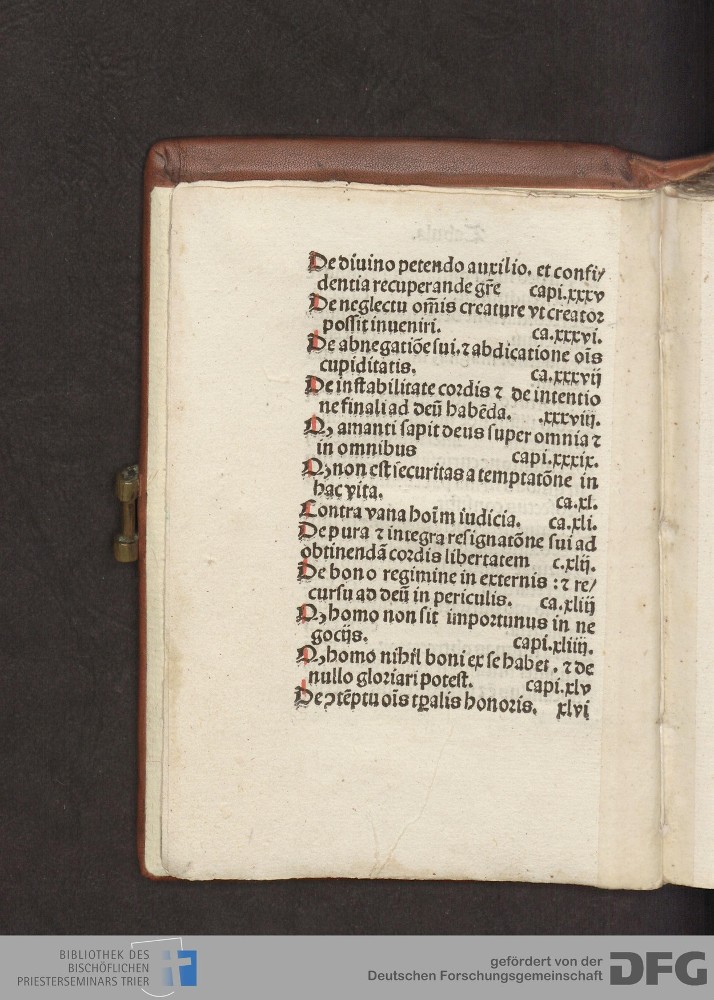 De diuino petendo auxilio. et confi/
dentia recuperande gr̄e capi.xxxv
De neglectu om̄is creature vt creator
possit inueniri. ca.xxxvi.
De abnegatiōe sui.⁊ abdicatione oīs
cupiditatis. ca.xxxvij
De instabilitate cordis ⁊ de intentio
ne finali ad deū habēda. .xxxviij.
Qꝫ amanti sapit deus super omnia ⁊
in omnibus capi.xxxix.
Qꝫ non est securitas a temptatōne in
hac vita. ca.xl.
Contra vana hoīm iudicia. ca.xli.
De pura ⁊ integra resignatōne sui ad
obtinendā cordis libertatem c.xlij.
De bono regimine in externis : ⁊ re/
cursu ad deū in periculis. ca.xliij
Qꝫ homo non sit importunus in ne
gocijs. capi.xliiij.
Qꝫ homo nihil boni ex se habet . ⁊ de
nullo gloriari potest. capi.xlv
De ꝯtēptu oīs tꝑalis honoris. xlvi
BIBLIOTHEK DES
BISCHÖFLICHEN
PRIESTERSEMINARS TRIER
gefördert von der
Deutschen Forschungsgemeinschaft DFG